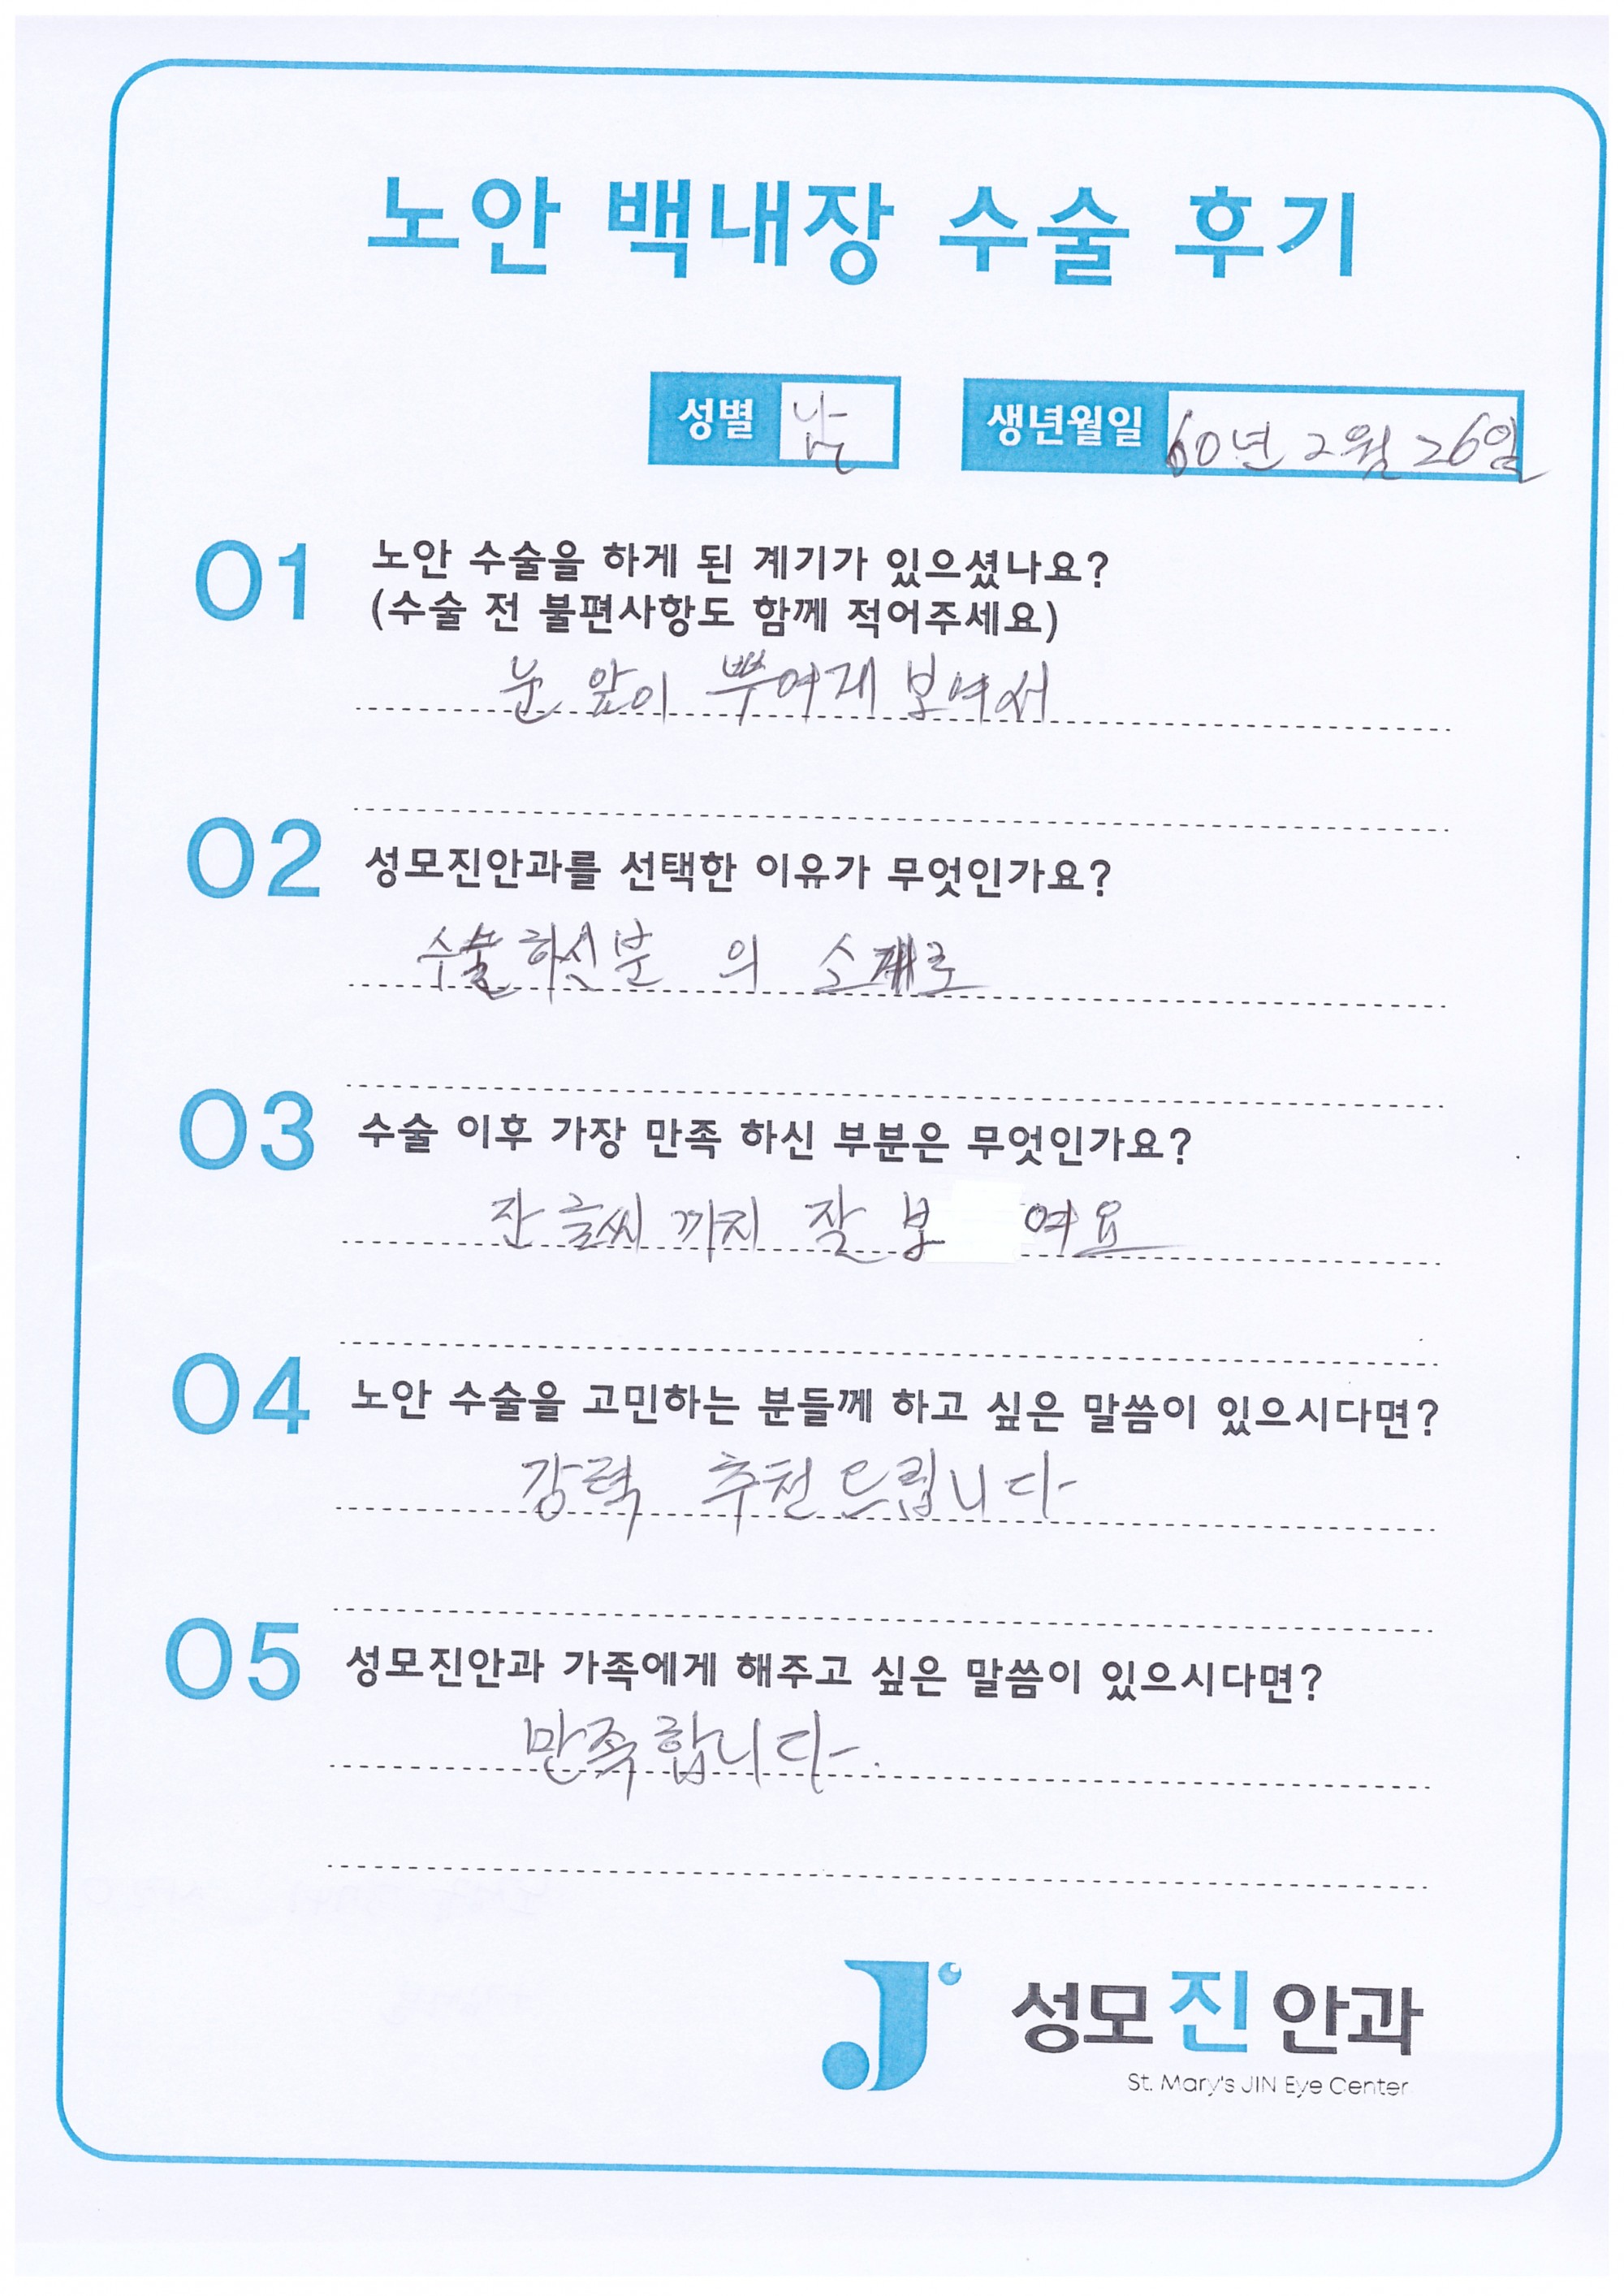 노안 백내장 수술 후기
성별 남 생년월일 60년 2월 26일
01 노안 수술을 하게 된 계기가 있으셨나요?
(수술 전 불편사항도 함께 적어주세요)
눈 앞이 뿌여게 보여서
02 성모진안과를 선택한 이유가 무엇인가요?
수술하신분 의 소개로
03 수술 이후 가장 만족 하신 부분은 무엇인가요?
잔글씨 까지 잘 보 여요
04 노안 수술을 고민하는 분들께 하고 싶은 말씀이 있으시다면?
강력 추천드립니다
05 성모진안과 가족에게 해주고 싶은 말씀이 있으시다면?
만족합니다.
성모진안과
St. Mary's JIN Eye Center